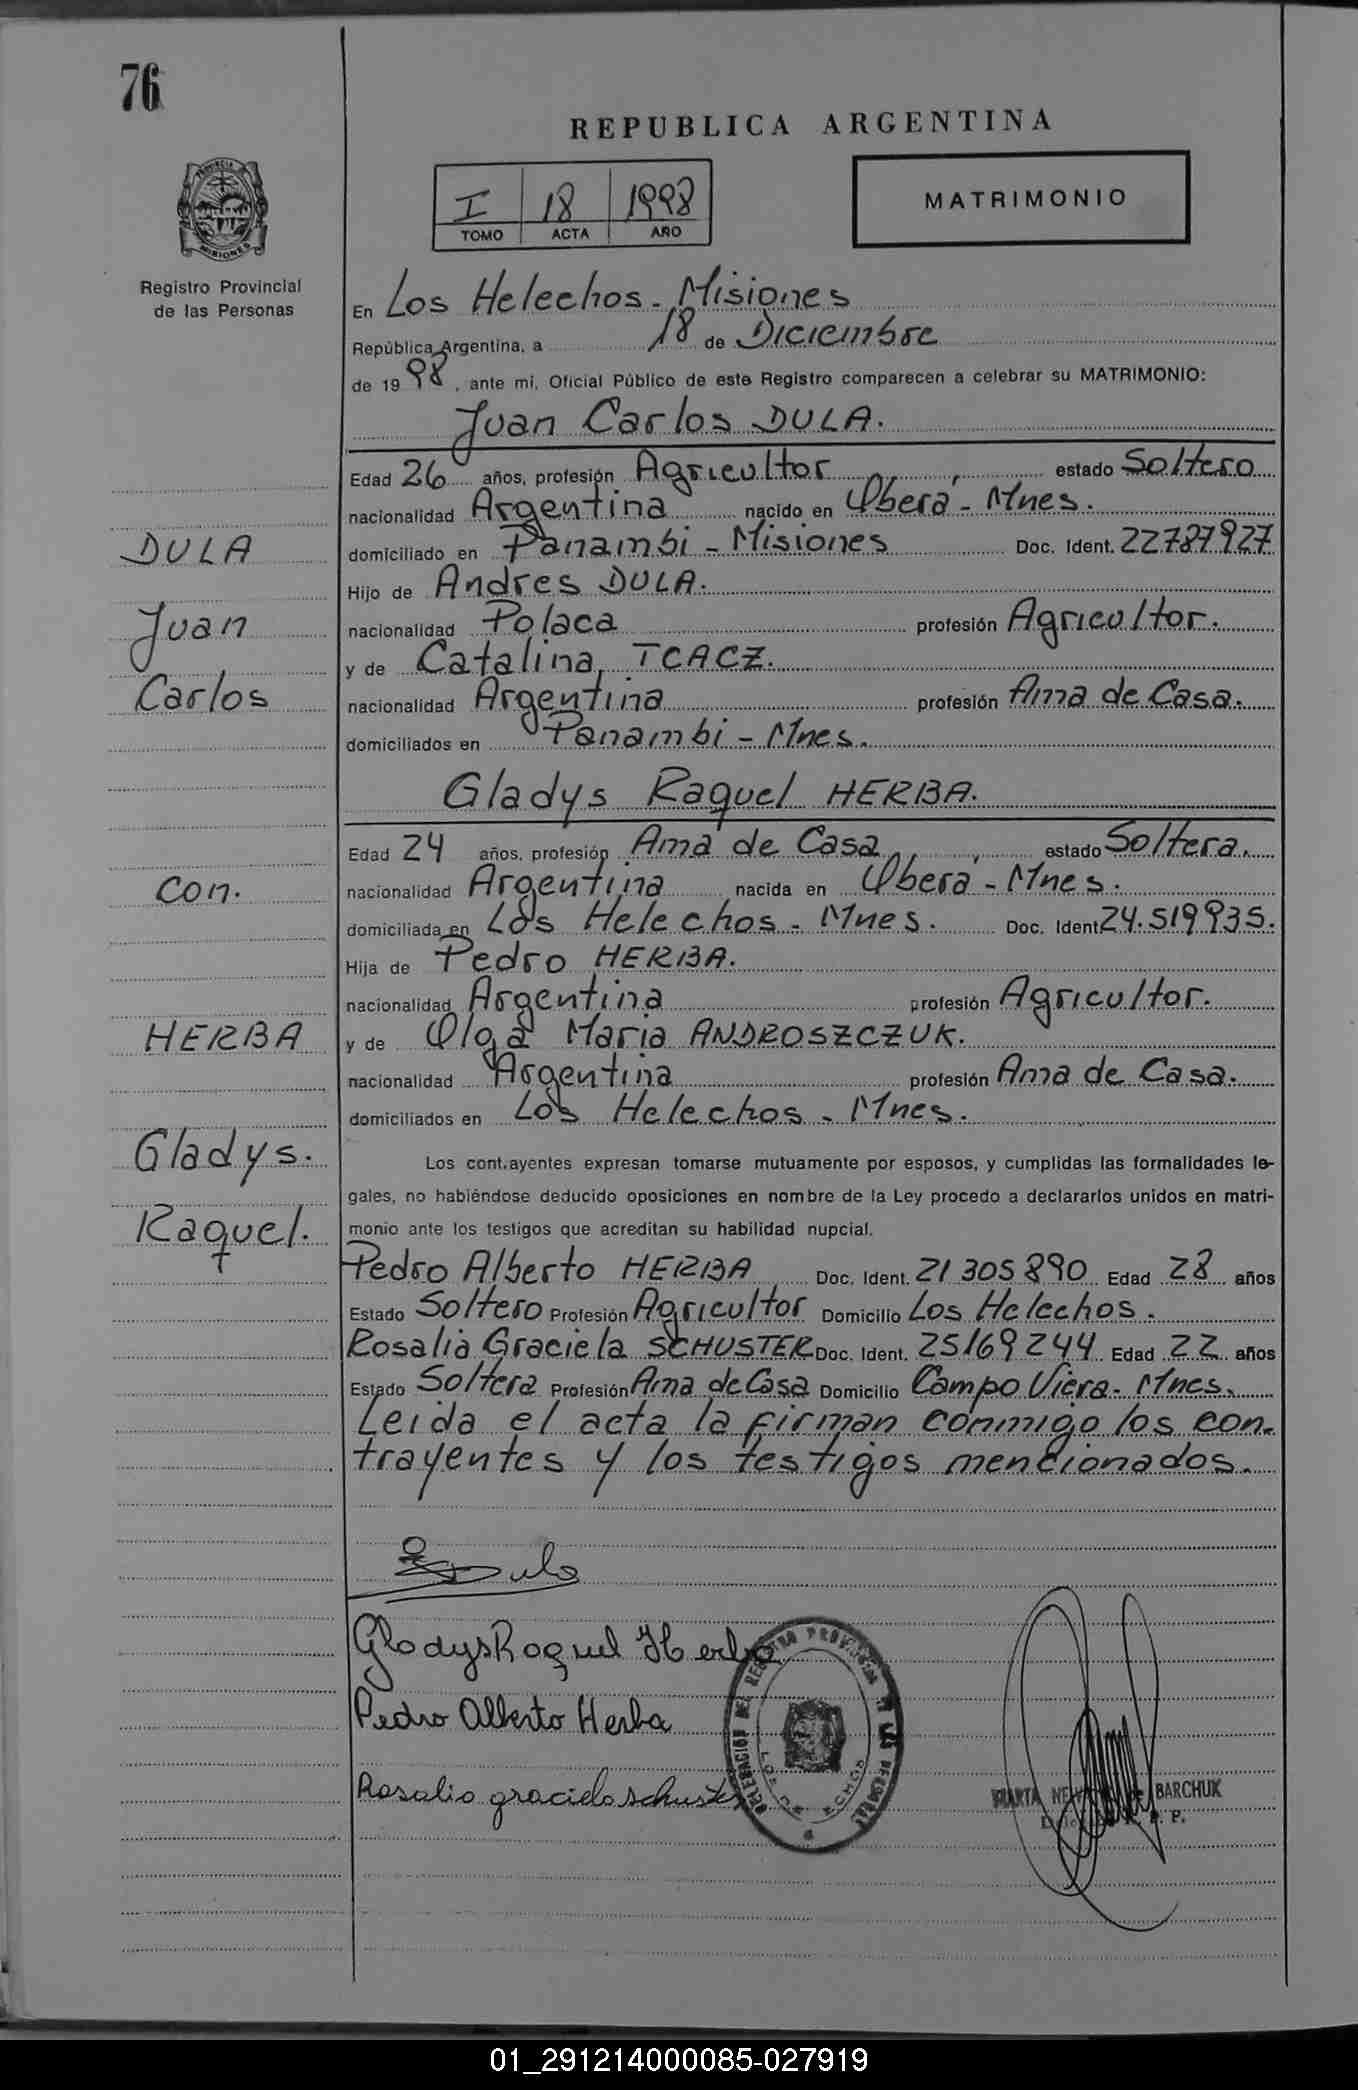 76
REPUBLICA ARGENTINA
I 18 1998
TOMO ACTA AÑO
MATRIMONIO
PROVINCIA
MISIONES
Registro Provincial
de las Personas
En Los Helechos - Misiones
República Argentina, a 18 de Diciembre
de 19 98, ante mi, Oficial Público de este Registro comparecen a celebrar su MATRIMONIO:
Juan Carlos DULA.
Edad 26 años, profesión Agricultor estado Soltero
nacionalidad Argentina nacido en Oberá - Mnes.
DULA
domiciliado en Panambi - Misiones Doc. Ident. 22787927
Hijo de Andres DULA.
Juan
nacionalidad Polaca profesión Agricultor.
y de Catalina TCACZ.
Carlos
nacionalidad Argentina profesión Ama de Casa.
domiciliados en Panambi - Mnes.
Gladys Raquel HERBA.
Edad 24 años, profesión Ama de Casa estado Soltera.
con.
nacionalidad Argentina nacida en Oberá - Mnes.
domiciliada en Los Helechos - Mnes. Doc. Ident 24.519935.
Hija de Pedro HERBA.
nacionalidad Argentina profesión Agricultor.
HERBA
y de Olga Maria ANDROSZCZUK.
nacionalidad Argentina profesión Ama de Casa.
domiciliados en Los Helechos - Mnes.
Gladys.
Los cont.ayentes expresan tomarse mutuamente por esposos, y cumplidas las formalidades le-
gales, no habiéndose deducido oposiciones en nombre de la Ley procedo a declararlos unidos en matri-
Raquel.
monio ante los testigos que acreditan su habilidad nupcial.
Pedro Alberto HERBA Doc. Ident. 21 305 890 Edad 28 años
Estado Soltero Profesión Agricultor Domicilio Los Helechos.
Rosalia Graciela SCHUSTER Doc. Ident. 25169244 Edad 22 años
Estado Soltera Profesión Ama de Casa Domicilio Campo Viera - Mnes.
Leida el acta la firman conmigo los con-
trayentes y los testigos mencionados.
Dula
Gladys Raquel Herba
Pedro Alberto Herba
Rosalia graciela schuster
DELEGACION DEL REGISTRO PROVINCIAL DE LAS PERSONAS
LOS HELECHOS
MARTA BARCHUK
R. P. P.
01_291214000085-027919